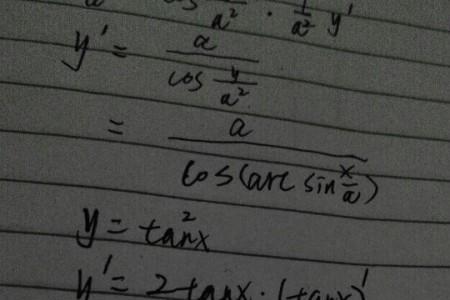 a cos y/a² · 1/a² y'
y' = a / cos y/a²
= a / cos(arc sin x/a)
y = tan²x
y' = 2tanx · (tanx)'